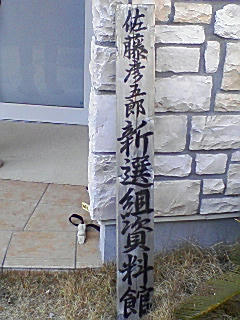 佐藤彦五郎新選組資料館